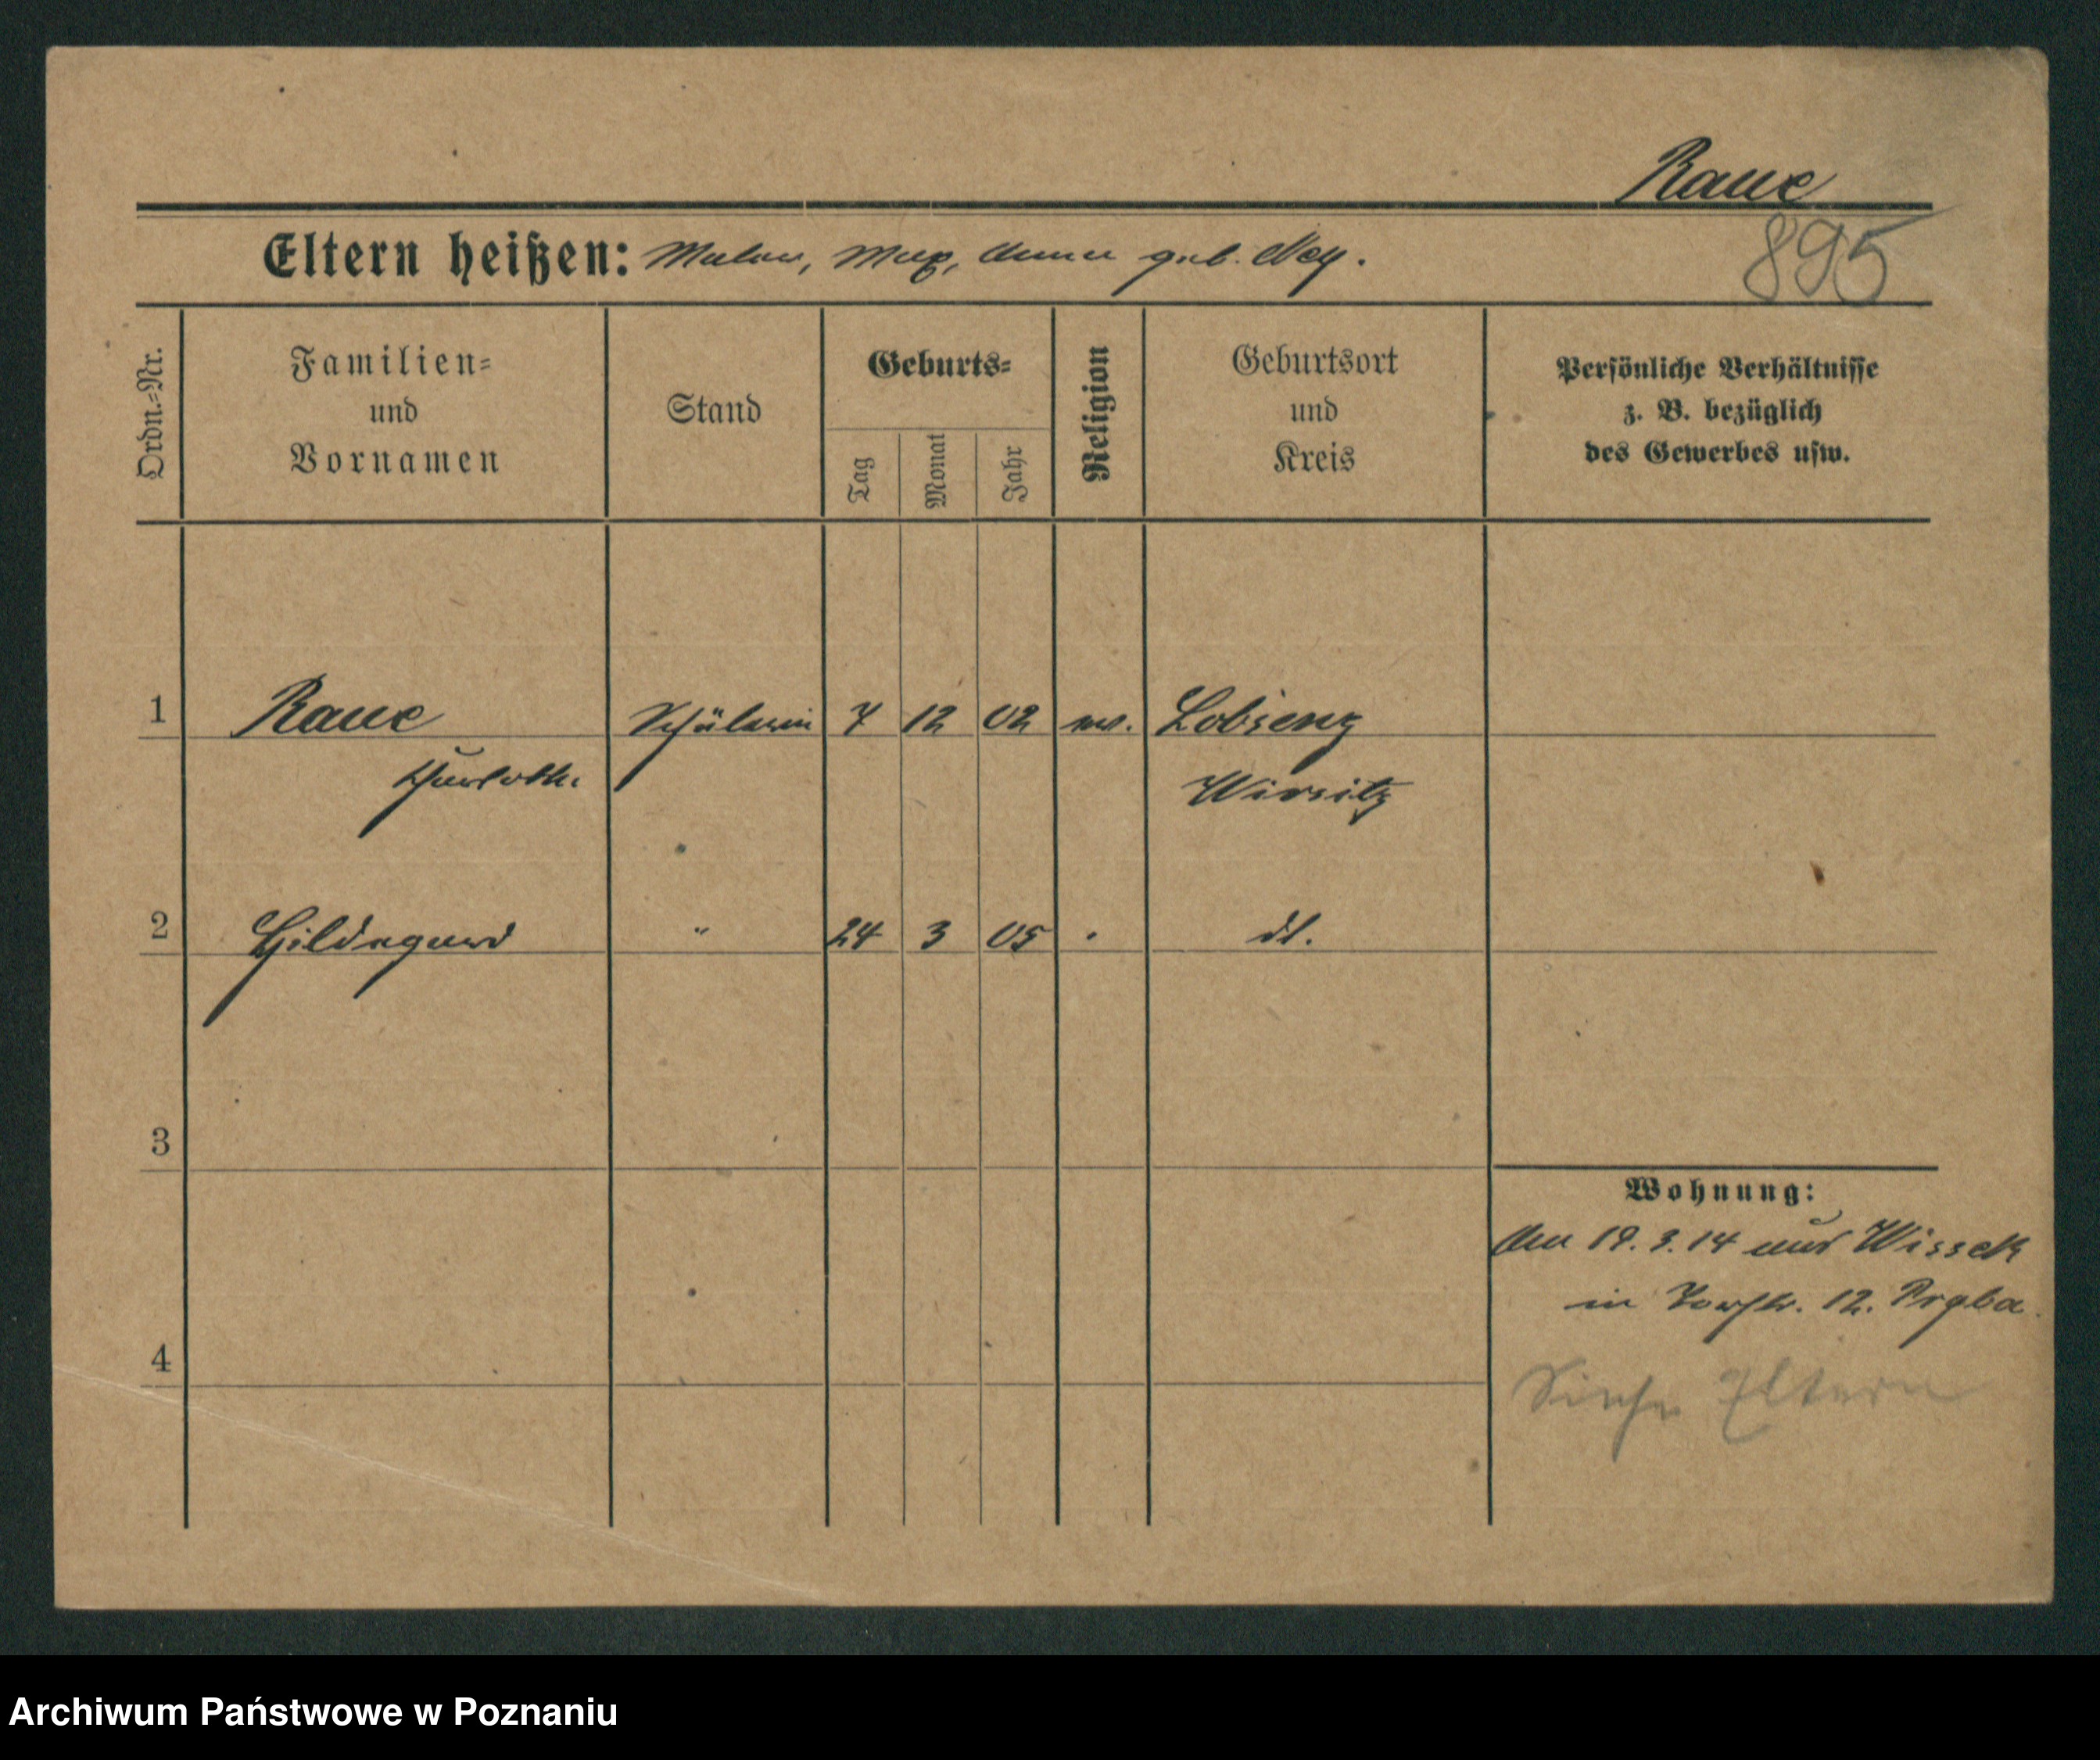 Raue
895
Eltern heißen: Maler, Max, Anna geb. Ney.
Ordn.=Nr.
Familien=
und
Vornamen
Stand
Geburts=
Tag
Monat
Jahr
Religion
Geburtsort
und
Kreis
Persönliche Verhältnisse
z. B. bezüglich
des Gewerbes usw.
1 Raue Schülerin 7 12 02 ev. Lobsenz
Wirsitz
2 Hildegard " 24 3 05 " do.
3
Wohnung:
Am 19.3.14 aus Wissek
in 12. Prgba.
4
Siehe Eltern
Archiwum Państwowe w Poznaniu